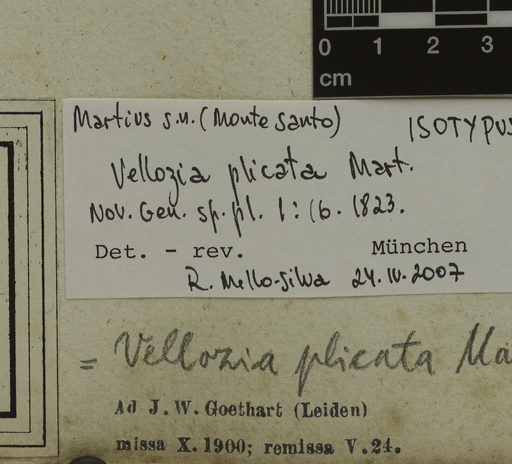 0 1 2 3
cm
Martius s.n. (Monte Santo) ISOTYPUS
Vellozia plicata Mart.
Nov. Gen. sp. pl. 1: 16. 1823.
Det. - rev. München
R. Mello-Silva 24.IV.2007
= Vellozia plicata Ma
Ad J. W. Goethart (Leiden)
missa X. 1900; remissa V. 24.